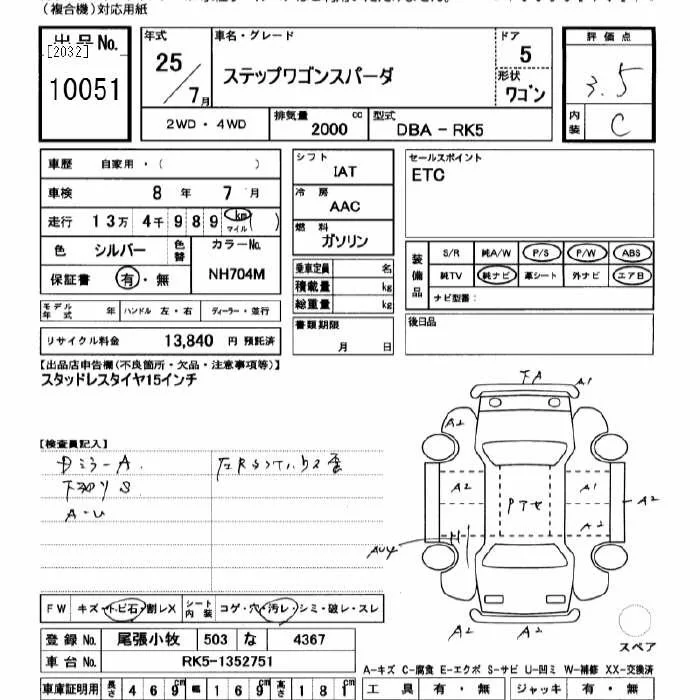 (複合機)対応用紙
出品No.
[2032]
10051
年式
25/7月
車名・グレード
ステップワゴンスパーダ
ドア
5
形状
ワゴン
評価点
3.5
内装
C
2WD・4WD
排気量
2000 cc
型式
DBA-RK5
車歴 自家用・( )
車検 8 年 7 月
走行 13万 4千 9 8 9 km マイル ( )
色 シルバー 色替
カラーNo.
NH704M
保証書 有・無
シフト
IAT
冷房
AAC
燃料
ガソリン
乗車定員 名
積載量 kg
総重量 kg
書類期限
月 日
セールスポイント
ETC
装備品
S/R 純A/W P/S P/W ABS
純TV 純ナビ 革シート 外ナビ エアB
ナビ型番:
後日品
モデル年式 年 ハンドル 左・右 ディーラー・並行
リサイクル料金 13,840 円 預託済
【出品店申告欄(不良箇所・欠品・注意事項等)】
スタッドレスタイヤ15インチ
【検査員記入】
A.
S
A-U
A1
A2
A2
A1
A2
A2
A2
A2
A2
FW キズ・トビ石・割レX
シート内装 コゲ・穴・汚レ・シミ・破レ・スレ
登録No. 尾張小牧 503 な 4367
車台No. RK5-1352751
スペア
A-キズ C-腐食 E-エクボ S-サビ U-凹ミ W-補修 XX-交換済
車庫証明用 長さ 469cm 幅 169cm 高さ 181cm
工具 有・無 ジャッキ 有・無